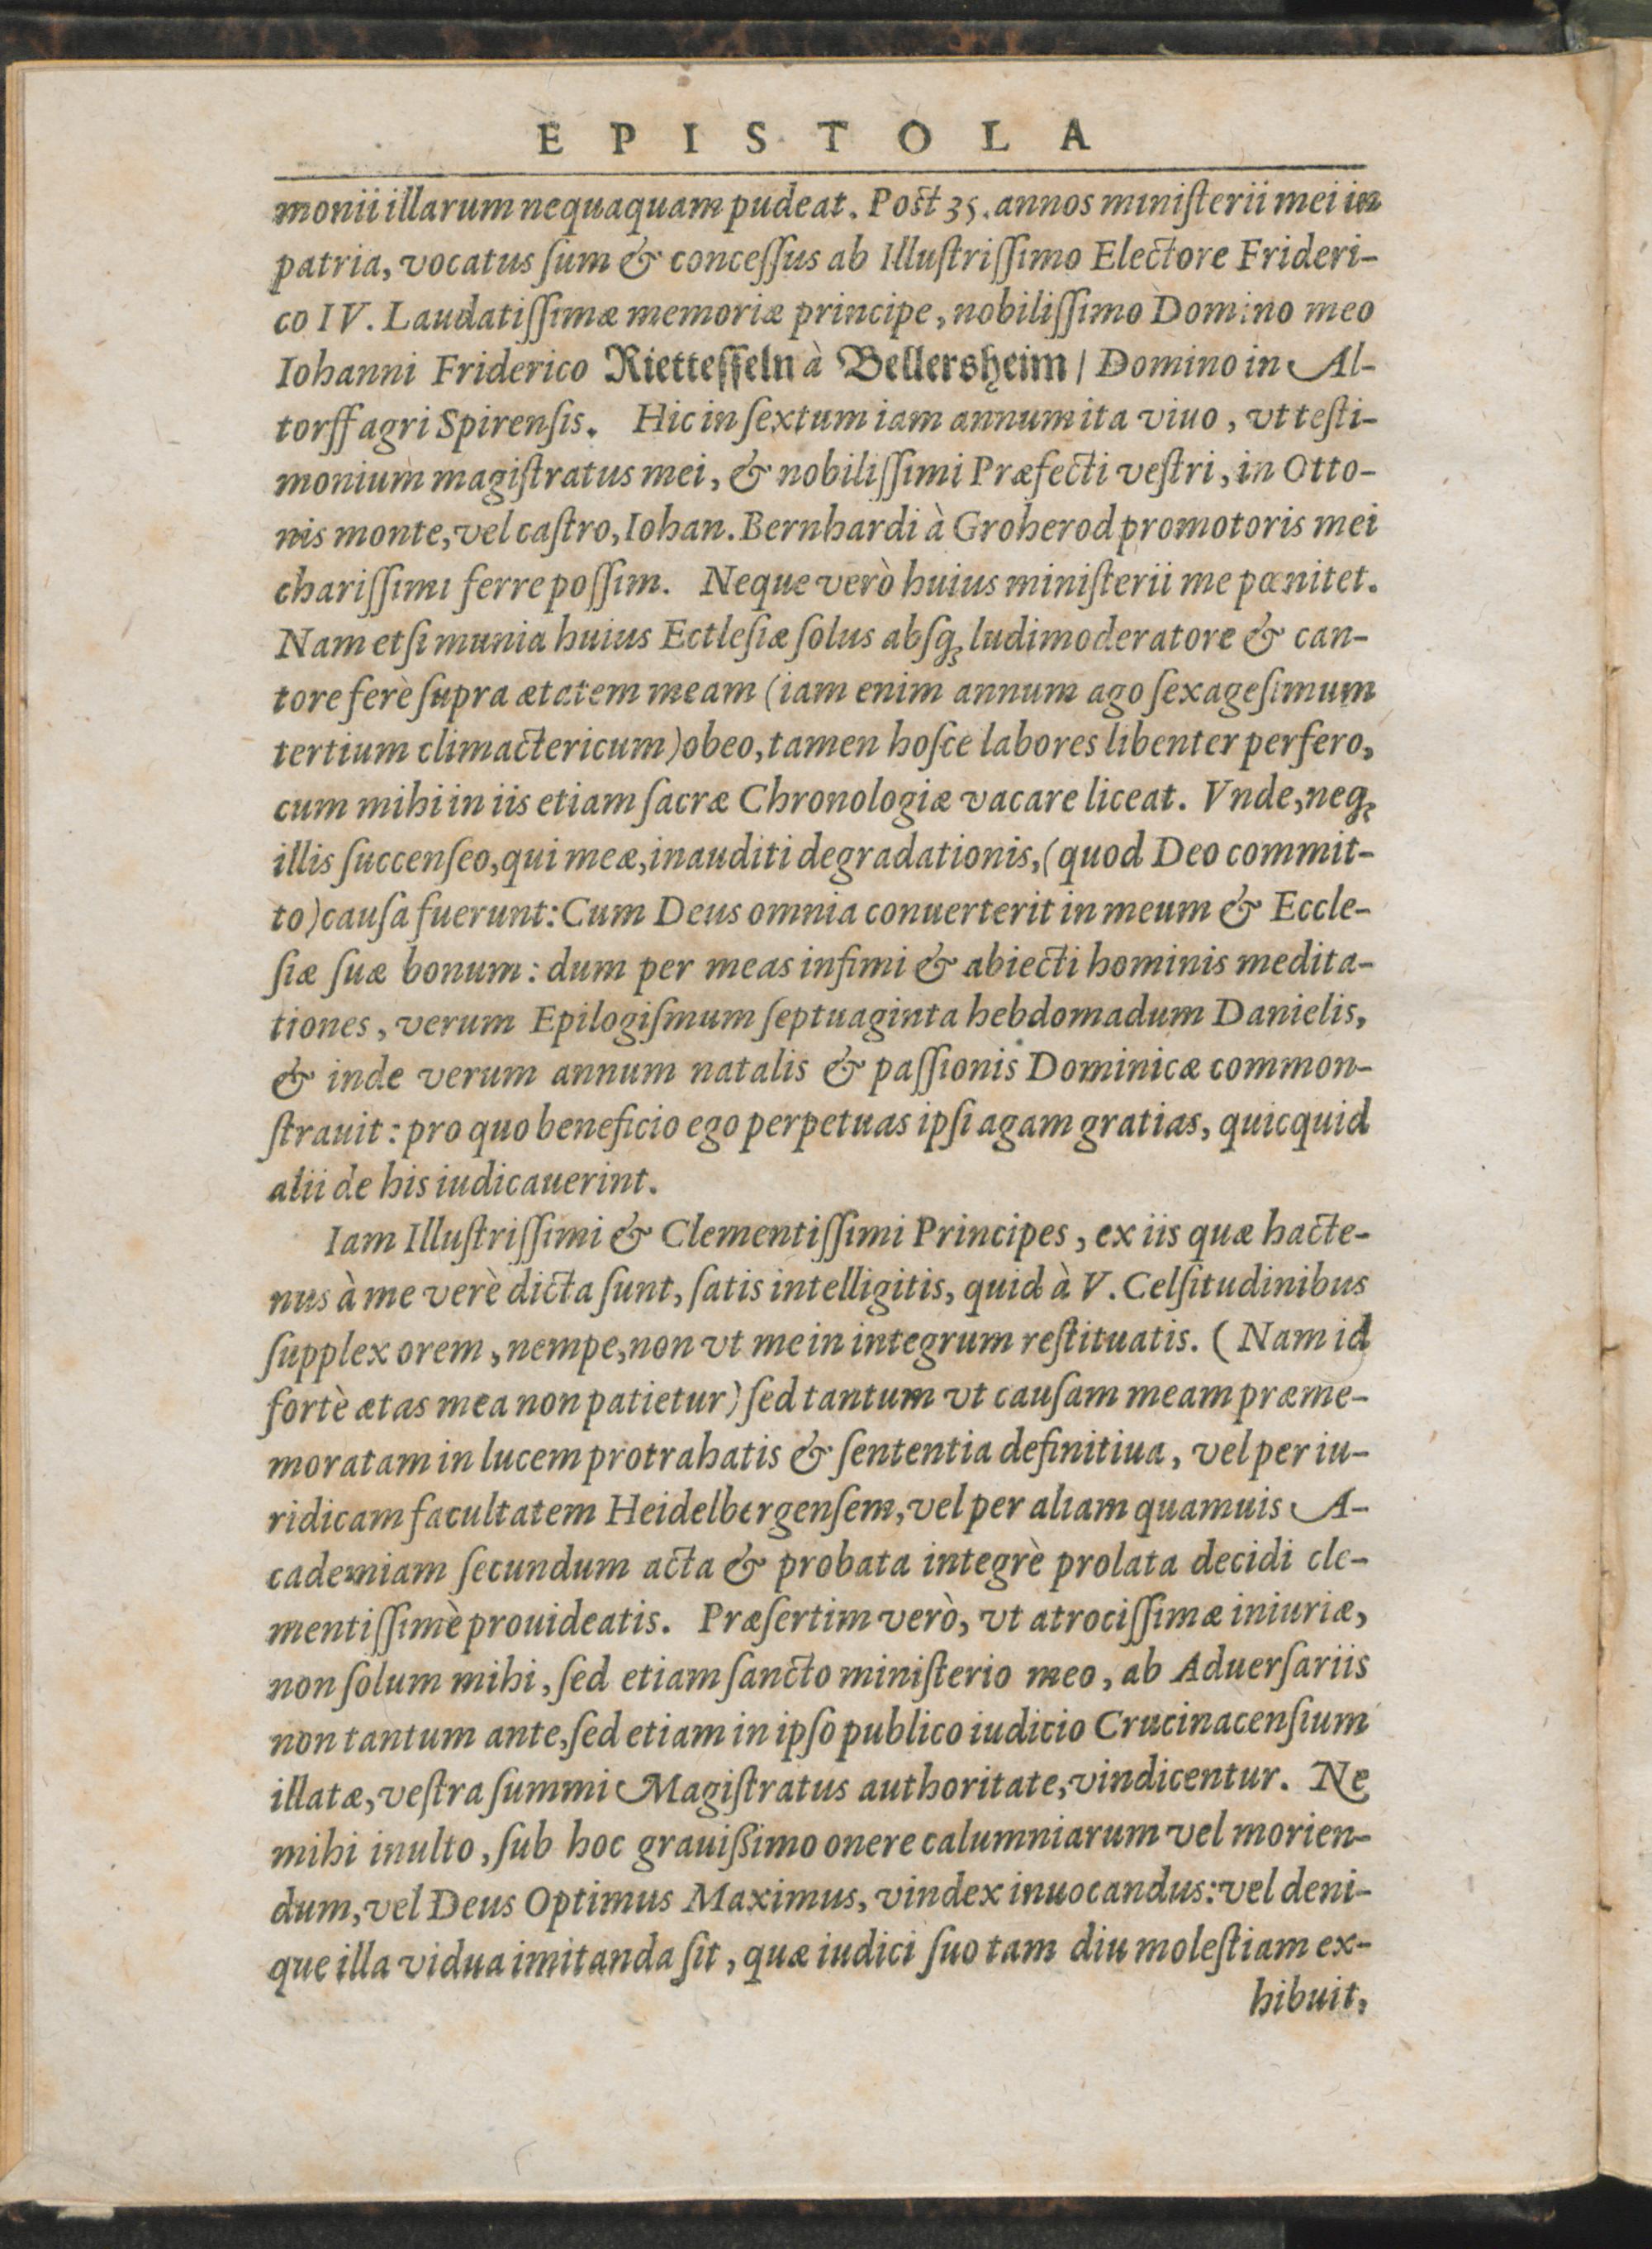 EPISTOLA
monii illarum nequaquam pudeat. Poſt 35. annos miniſterii mei in
patria, vocatus ſum & conceſſus ab Illuſtriſſimo Electore Frideri-
co IV. Laudatiſſimæ memoriæ principe, nobiliſſimo Domino meo
Iohanni Friderico Rietteſſeln à Bellersheim / Domino in Al-
torff agri Spirenſis. Hic in ſextum iam annum ita viuo, vt teſti-
monium magiſtratus mei, & nobiliſſimi Præfecti veſtri, in Otto-
nis monte, vel caſtro, Iohan. Bernhardi à Groherod promotoris mei
chariſſimi ferre poſſim. Neque verò huius miniſterii me pœnitet.
Nam etſi munia huius Ectleſiæ ſolus abſq; ludimoderatore & can-
tore ferè ſupra ætatem meam (iam enim annum ago ſexageſimum
tertium climactericum) obeo, tamen hoſce labores libenter perfero,
cum mihi in iis etiam ſacræ Chronologiæ vacare liceat. Vnde, neq;
illis ſuccenſeo, qui meæ, inauditi degradationis, (quod Deo commit-
to) cauſa fuerunt: Cum Deus omnia conuerterit in meum & Eccle-
ſiæ ſuæ bonum: dum per meas infimi & abiecti hominis medita-
tiones, verum Epilogiſmum ſeptuaginta hebdomadum Danielis,
& inde verum annum natalis & paſſionis Dominicæ common-
ſtrauit: pro quo beneficio ego perpetuas ipſi agam gratias, quicquid
alii de his iudicauerint.
Iam Illuſtriſſimi & Clementiſſimi Principes, ex iis quæ hacte-
nus à me verè dicta ſunt, ſatis intelligitis, quid à V. Celſitudinibus
ſupplex orem, nempe, non vt me in integrum reſtituatis. (Nam id
fortè ætas mea non patietur) ſed tantum vt cauſam meam præme-
moratam in lucem protrahatis & ſententia definitiua, vel per iu-
ridicam facultatem Heidelbergenſem, vel per aliam quamuis A-
cademiam ſecundum acta & probata integrè prolata decidi cle-
mentiſſimè prouideatis. Præſertim verò, vt atrociſſimæ iniuriæ,
non ſolum mihi, ſed etiam ſancto miniſterio meo, ab Aduerſariis
non tantum ante, ſed etiam in ipſo publico iudicio Crucinacenſium
illatæ, veſtra ſummi Magiſtratus authoritate, vindicentur. Ne
mihi inulto, ſub hoc grauiſsimo onere calumniarum vel morien-
dum, vel Deus Optimus Maximus, vindex inuocandus: vel deni-
que illa vidua imitanda ſit, quæ iudici ſuo tam diu moleſtiam ex-
hibuit,